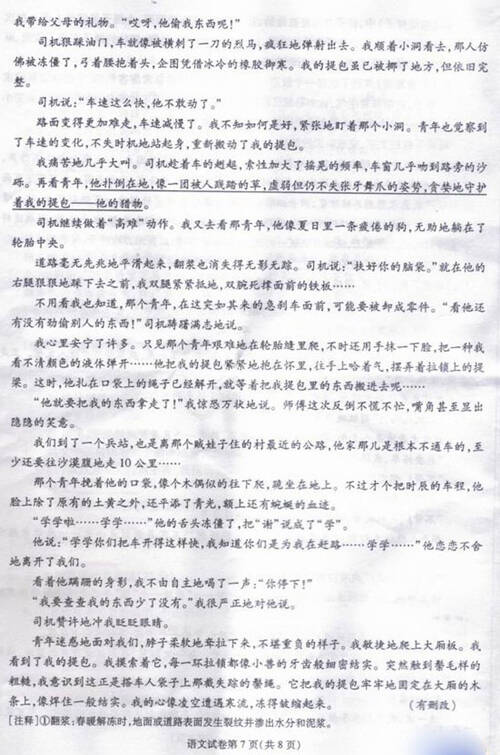 我带给父母的礼物。“哎呀,他偷我东西呢!”
司机狠踩油门,车就像被横刺了一刀的烈马,疯狂地弹射出去。我顺着小洞看去,那人仿
佛被冻僵了,弓着腰抱着头,企图凭借冰冷的橡胶御寒。我的提包虽已被挪了地方,但依旧完
整。
司机说:“车速这么快,他不敢动了。”
路面变得更加难走,车速减慢了。我不知如何是好,紧张地盯着那个小洞。青年也觉察到
了车速的变化,不失时机地站起身,重新搬动了我的提包。
我痛苦地几乎大叫。司机趁着车的趔趄,索性加大了摇晃的频率,车窗几乎吻到路旁的沙
砾。再看青年,他扑倒在地,像一团被人践踏的草,虚弱但仍不失张牙舞爪的姿势,贪婪地守护
着我的提包——他的猎物。
司机继续做着“高难”动作。我又去看那青年,他像夏日里一条疲倦的狗,无助地躺在了
轮胎中央。
道路毫无先兆地平滑起来,翻浆也消失得无影无踪。司机说:“扶好你的脑袋。”就在他的
右腿狠狠地踩下去之前,我双腿紧紧抵地,双腕死撑面前的铁板……
不用看我也知道,那个青年,在这突如其来的急刹车面前,可能要被卸成零件。“看他还
有没有劲偷别人的东西!”司机踌躇满志地说。
我心里安宁了许多。只见那个青年艰难地在轮胎缝里爬,不时还用手抹一下脸,把一种我
看不清颜色的液体弹开……他把我的提包紧紧地抱在怀里,往手上哈着气,摆弄着拉锁上的提
梁。这时,他扎在口袋上的绳子已经解开,就等着把我提包里的东西搬进去呢……
“他就要把我的东西拿走了!”我惊恐万状地说。师傅这次反倒不慌不忙,嘴角甚至显出
隐隐的笑意。
我们到了一个兵站,也是离那个贼娃子住的村最近的公路,他家那儿是根本不通车的,至
少还要往沙漠腹地走 10 公里……
那个青年挽着他的口袋,像个木偶似的往下爬,跪坐在地上。不过才个把时辰的车程,他
脸上除了原有的土黄之外,还平添了青光,额上还有蜿蜒的血迹。
“学学啦……学学……”他的舌头冻僵了,把“谢”说成了“学”。
他说:“学学你们把车开得这样快,我知道你们是为我在赶路……学学……”他恋恋不舍
地离开了我们。
看着他蹒跚的身影,我不由自主地喝了一声:“你停下!”
“我要查查我的东西少了没有。”我很严正地对他说。
司机赞许地冲我眨眨眼睛。
青年迷惑地面对我们,脖子柔软地耷拉下来,不堪重负的样子。我敏捷地爬上大厢板。我
看到了我的提包。我摸索着它,每一环拉锁都像小兽的牙齿般细密结实。突然触到鬃毛样的
粗糙,我意识到这正是搭车人袋子上那截失踪的鬃绳。它把我的提包牢牢地固定在大厢的木
条上,像焊住一般结实。我的心像凌空遭遇寒流,冻得皱缩起来。(有删改)
[注释]①翻浆:春暖解冻时,地面或道路表面发生裂纹并渗出水分和泥浆。
语文试卷第 7 页(共 8 页)